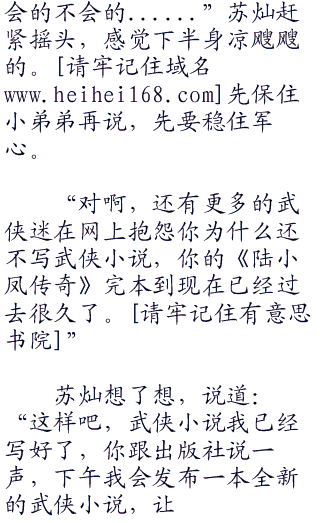 会的不会的......”苏灿赶
紧摇头，感觉下半身凉飕飕
的。[请牢记住域名
www.heihei168.com]先保住
小弟弟再说，先要稳住军
心。
“对啊，还有更多的武
侠迷在网上抱怨你为什么还
不写武侠小说，你的《陆小
凤传奇》完本到现在已经过
去很久了。[请牢记住有意思
书院]”
苏灿想了想，说道：
“这样吧，武侠小说我已经
写好了，你跟出版社说一
声，下午我会发布一本全新
的武侠小说，让